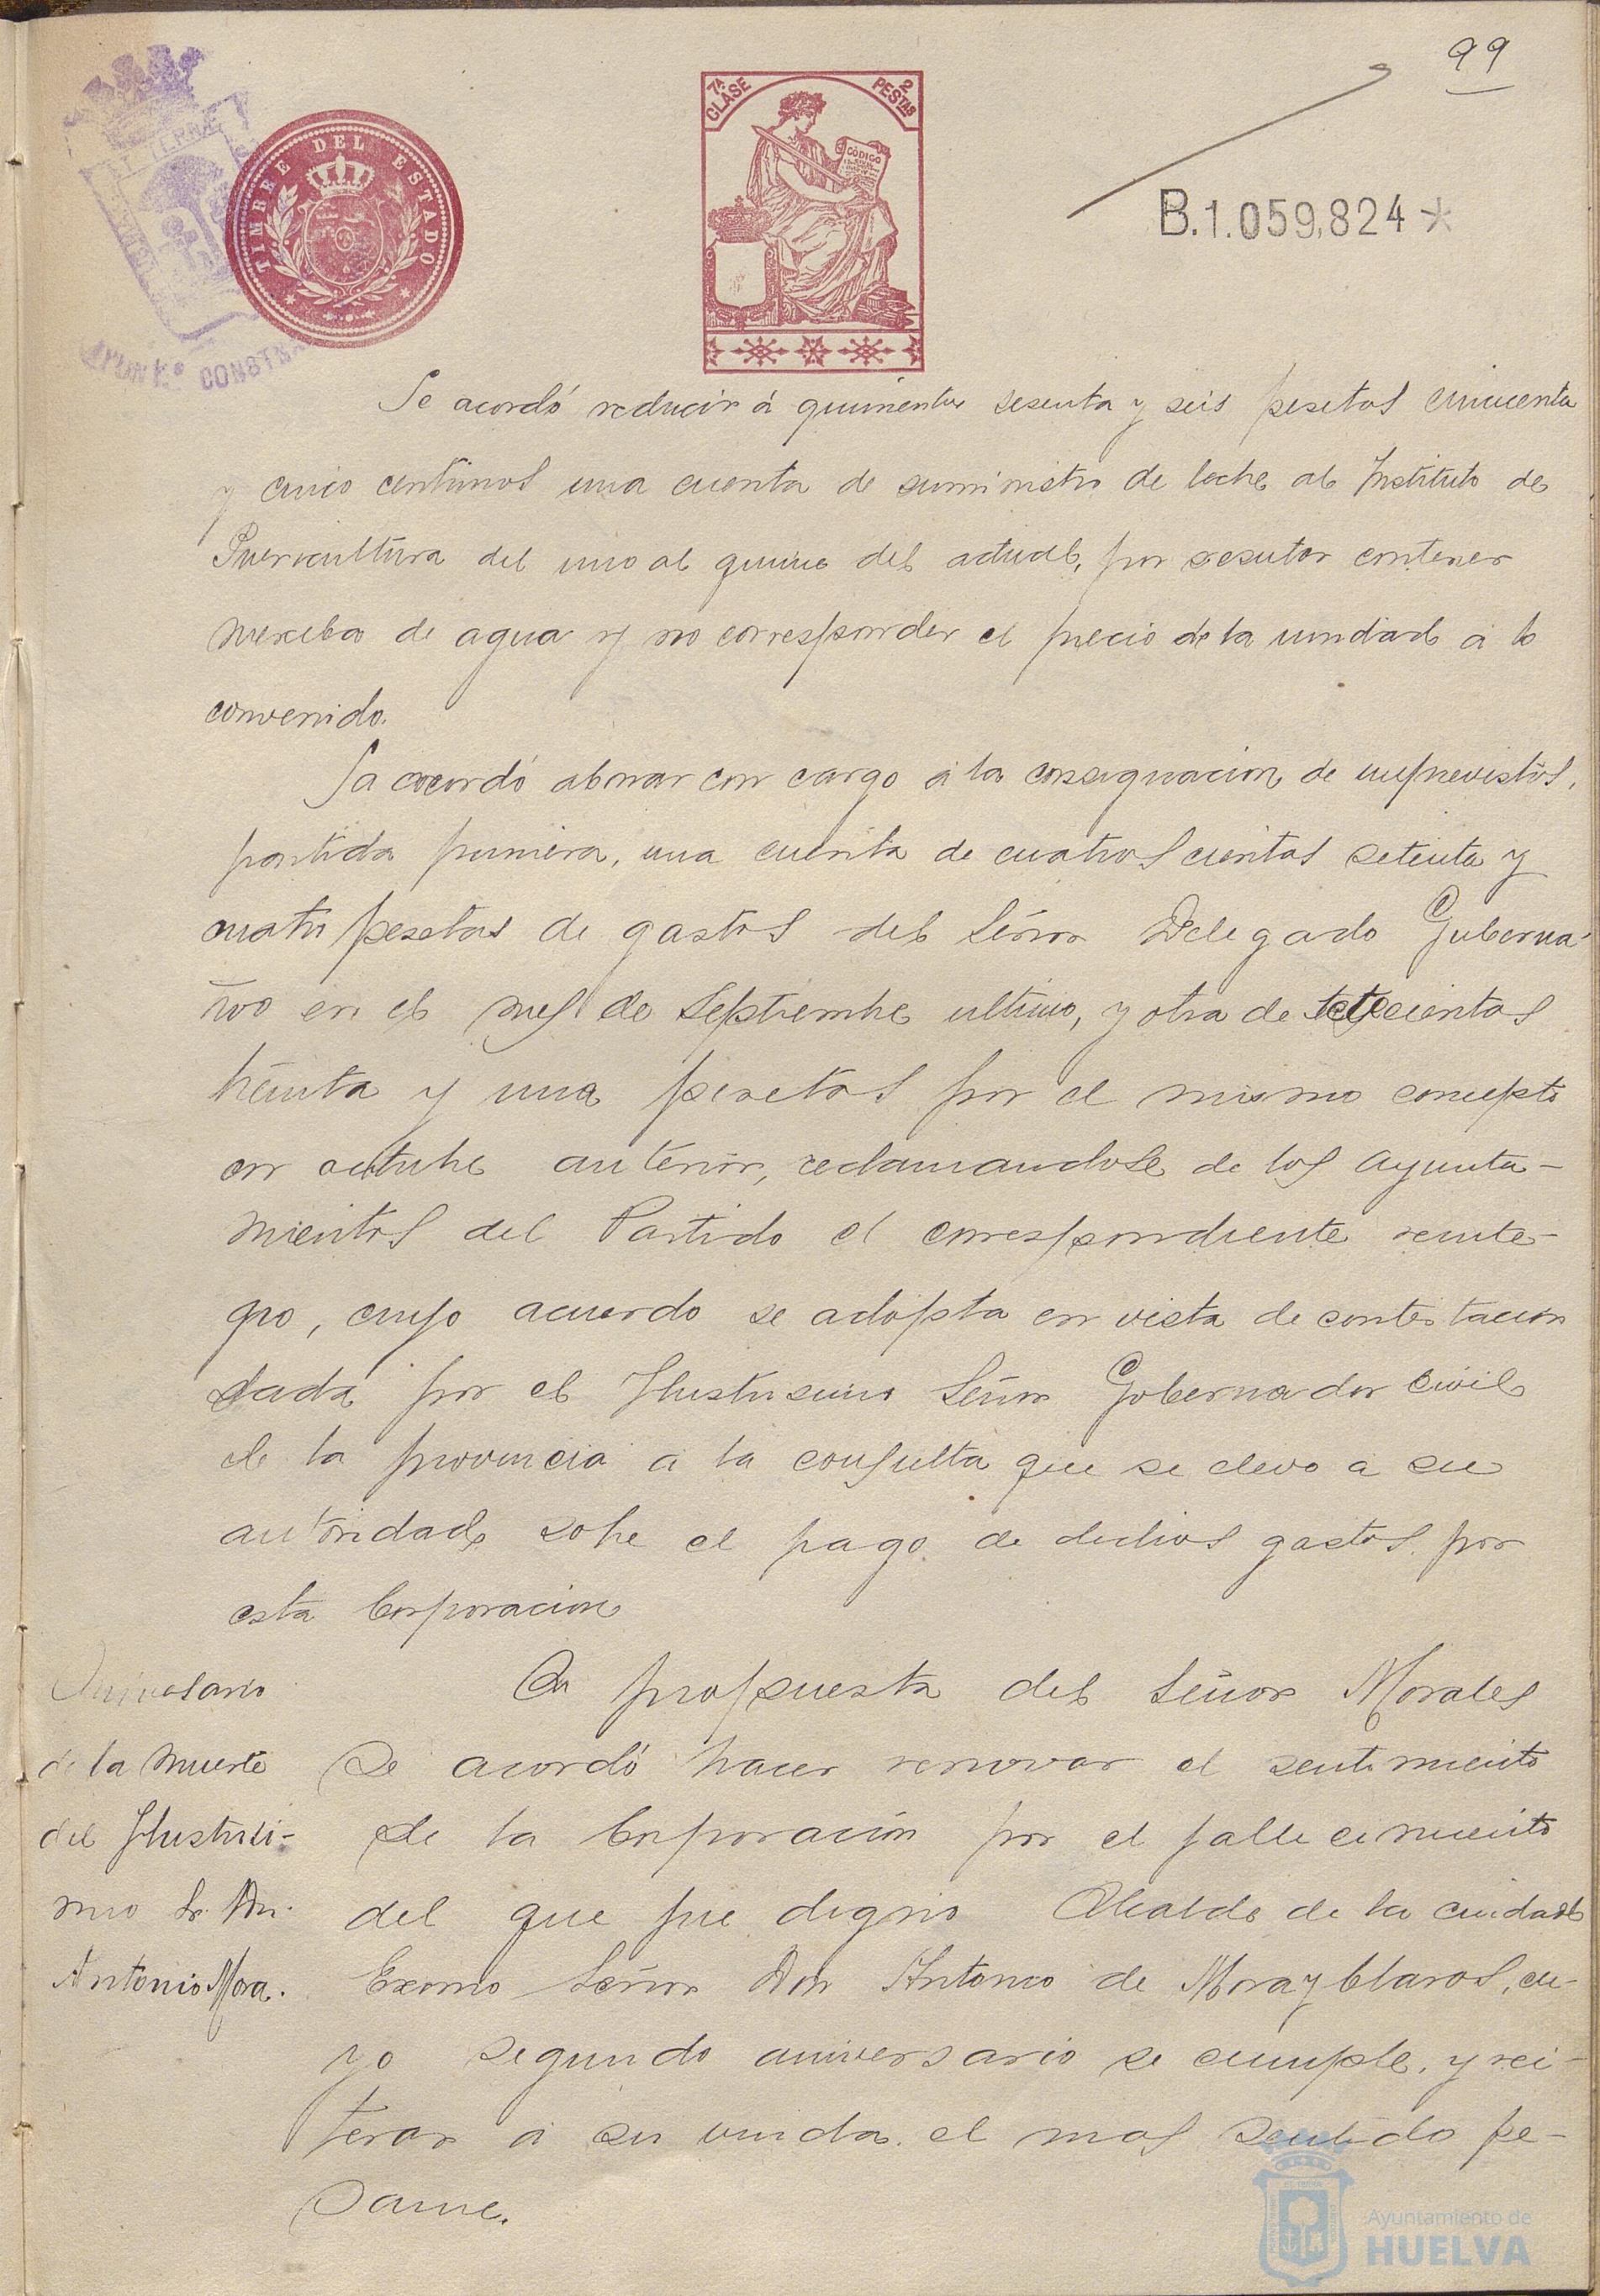 99
7ª CLASE
2 PESTAS
CÓDIGO
TIMBRE DEL ESTADO
AYUNTº CONSTN
B.1.059,824*
Se acordó reducir á quinientas sesenta y seis pesetas cincuenta
y cinco centimos una cuenta de suministro de leche al Instituto de
Puericultura del uno al quince del actual, por resutar contener
mezcla de agua y no corresponder el precio de la unidad a lo
convenido.
Sa acordó abonar con cargo á la consignacion de imprevistos,
partida primera, una cuenta de cuatroscientas setenta y
cuatro pesetas de gastos del Señor Delegado Guberna-
tivo en el mes de Septiembre ultimo, y otra de setecientas
treinta y una pesetas por el mismo concepto
en octubre anterior, reclamandose de los Ayunta-
mientos del Partido el correspondiente reinte-
gro, cuyo acuerdo se adopta en vista de contestacion
dada por el Ilustrisimo Señor Gobernador civil
de la provincia a la consulta que se elevo a su
autoridad sobre el pago de dichos gastos por
esta Corporacion
Aniversario
de la muerte
del Ilustrisi-
mo Sr. Dn.
Antonio Mora.
A propuesta del Señor Morales
se acordó hacer renovar el sentimiento
de la Corporación por el fallecimiento
del que fue digno Alcalde de la ciudad
Excmo Señor Don Antonio de Mora y Claros, cu-
yo segundo aniversario se cumple, y rei-
terar a su viuda el mas sentido pe-
same.
Ayuntamiento de
HUELVA